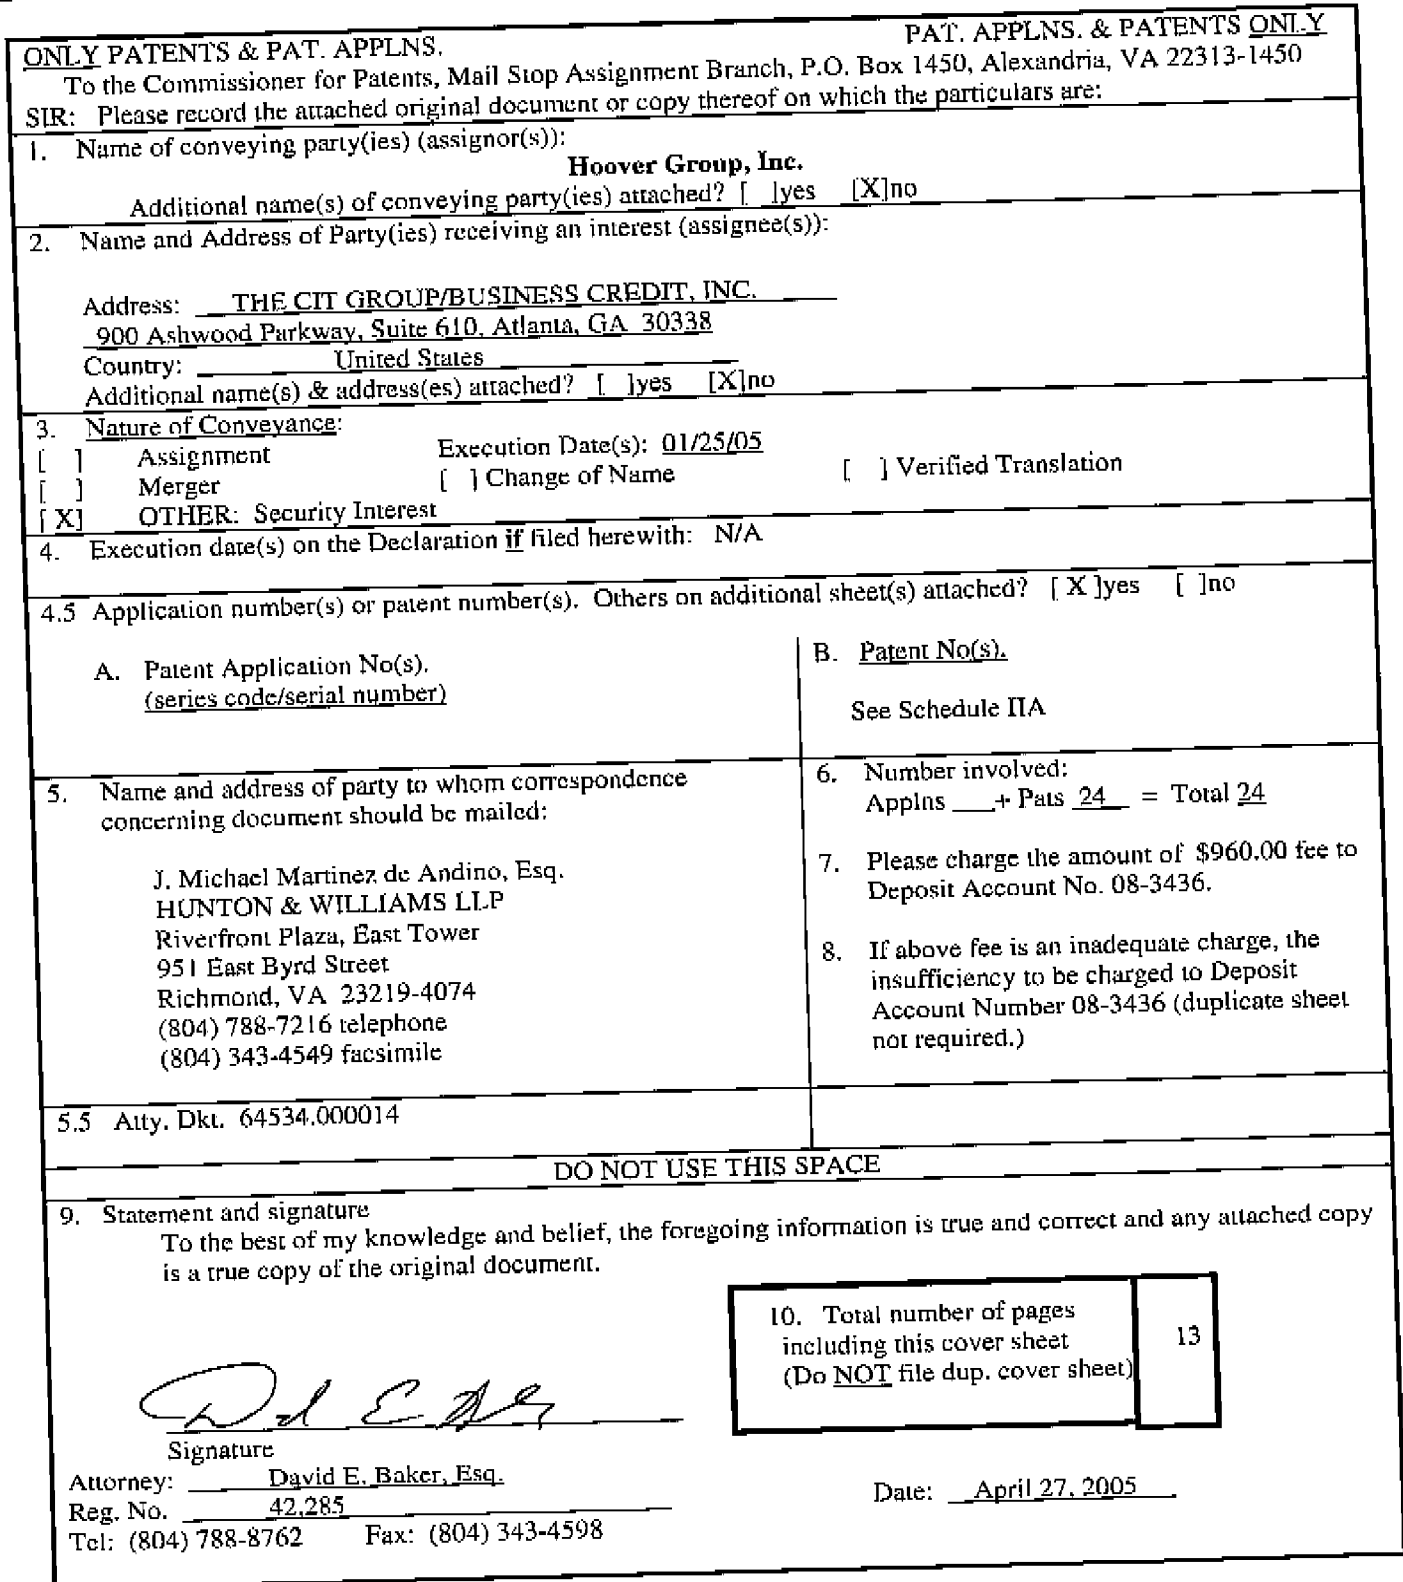 ONLY PATENTS & PAT. APPLNS. PAT. APPLNS. & PATENTS ONLY
To the Commissioner for Patents, Mail Stop Assignment Branch, P.O. Box 1450, Alexandria, VA 22313-1450
SIR: Please record the attached original document or copy thereof on which the particulars are:
1. Name of conveying party(ies) (assignor(s)):
Hoover Group, Inc.
Additional name(s) of conveying party(ies) attached? [ ]yes [X]no
2. Name and Address of Party(ies) receiving an interest (assignee(s)):
Address: THE CIT GROUP/BUSINESS CREDIT, INC.
900 Ashwood Parkway, Suite 610, Atlanta, GA 30338
Country: United States
Additional name(s) & address(es) attached? [ ]yes [X]no
3. Nature of Conveyance:
[ ] Assignment Execution Date(s): 01/25/05
[ ] Merger [ ] Change of Name [ ] Verified Translation
[ X] OTHER: Security Interest
4. Execution date(s) on the Declaration if filed herewith: N/A
4.5 Application number(s) or patent number(s). Others on additional sheet(s) attached? [ X ]yes [ ]no
A. Patent Application No(s).
(series code/serial number)
B. Patent No(s).
See Schedule IIA
5. Name and address of party to whom correspondence
concerning document should be mailed:
J. Michael Martinez de Andino, Esq.
HUNTON & WILLIAMS LLP
Riverfront Plaza, East Tower
951 East Byrd Street
Richmond, VA 23219-4074
(804) 788-7216 telephone
(804) 343-4549 facsimile
6. Number involved:
Applns ___+ Pats 24 = Total 24
7. Please charge the amount of $960.00 fee to
Deposit Account No. 08-3436.
8. If above fee is an inadequate charge, the
insufficiency to be charged to Deposit
Account Number 08-3436 (duplicate sheet
not required.)
5.5 Atty. Dkt. 64534.000014
DO NOT USE THIS SPACE
9. Statement and signature
To the best of my knowledge and belief, the foregoing information is true and correct and any attached copy
is a true copy of the original document.
10. Total number of pages
including this cover sheet
(Do NOT file dup. cover sheet)
13
Signature
Attorney: David E. Baker, Esq.
Reg. No. 42,285
Tel: (804) 788-8762 Fax: (804) 343-4598
Date: April 27, 2005